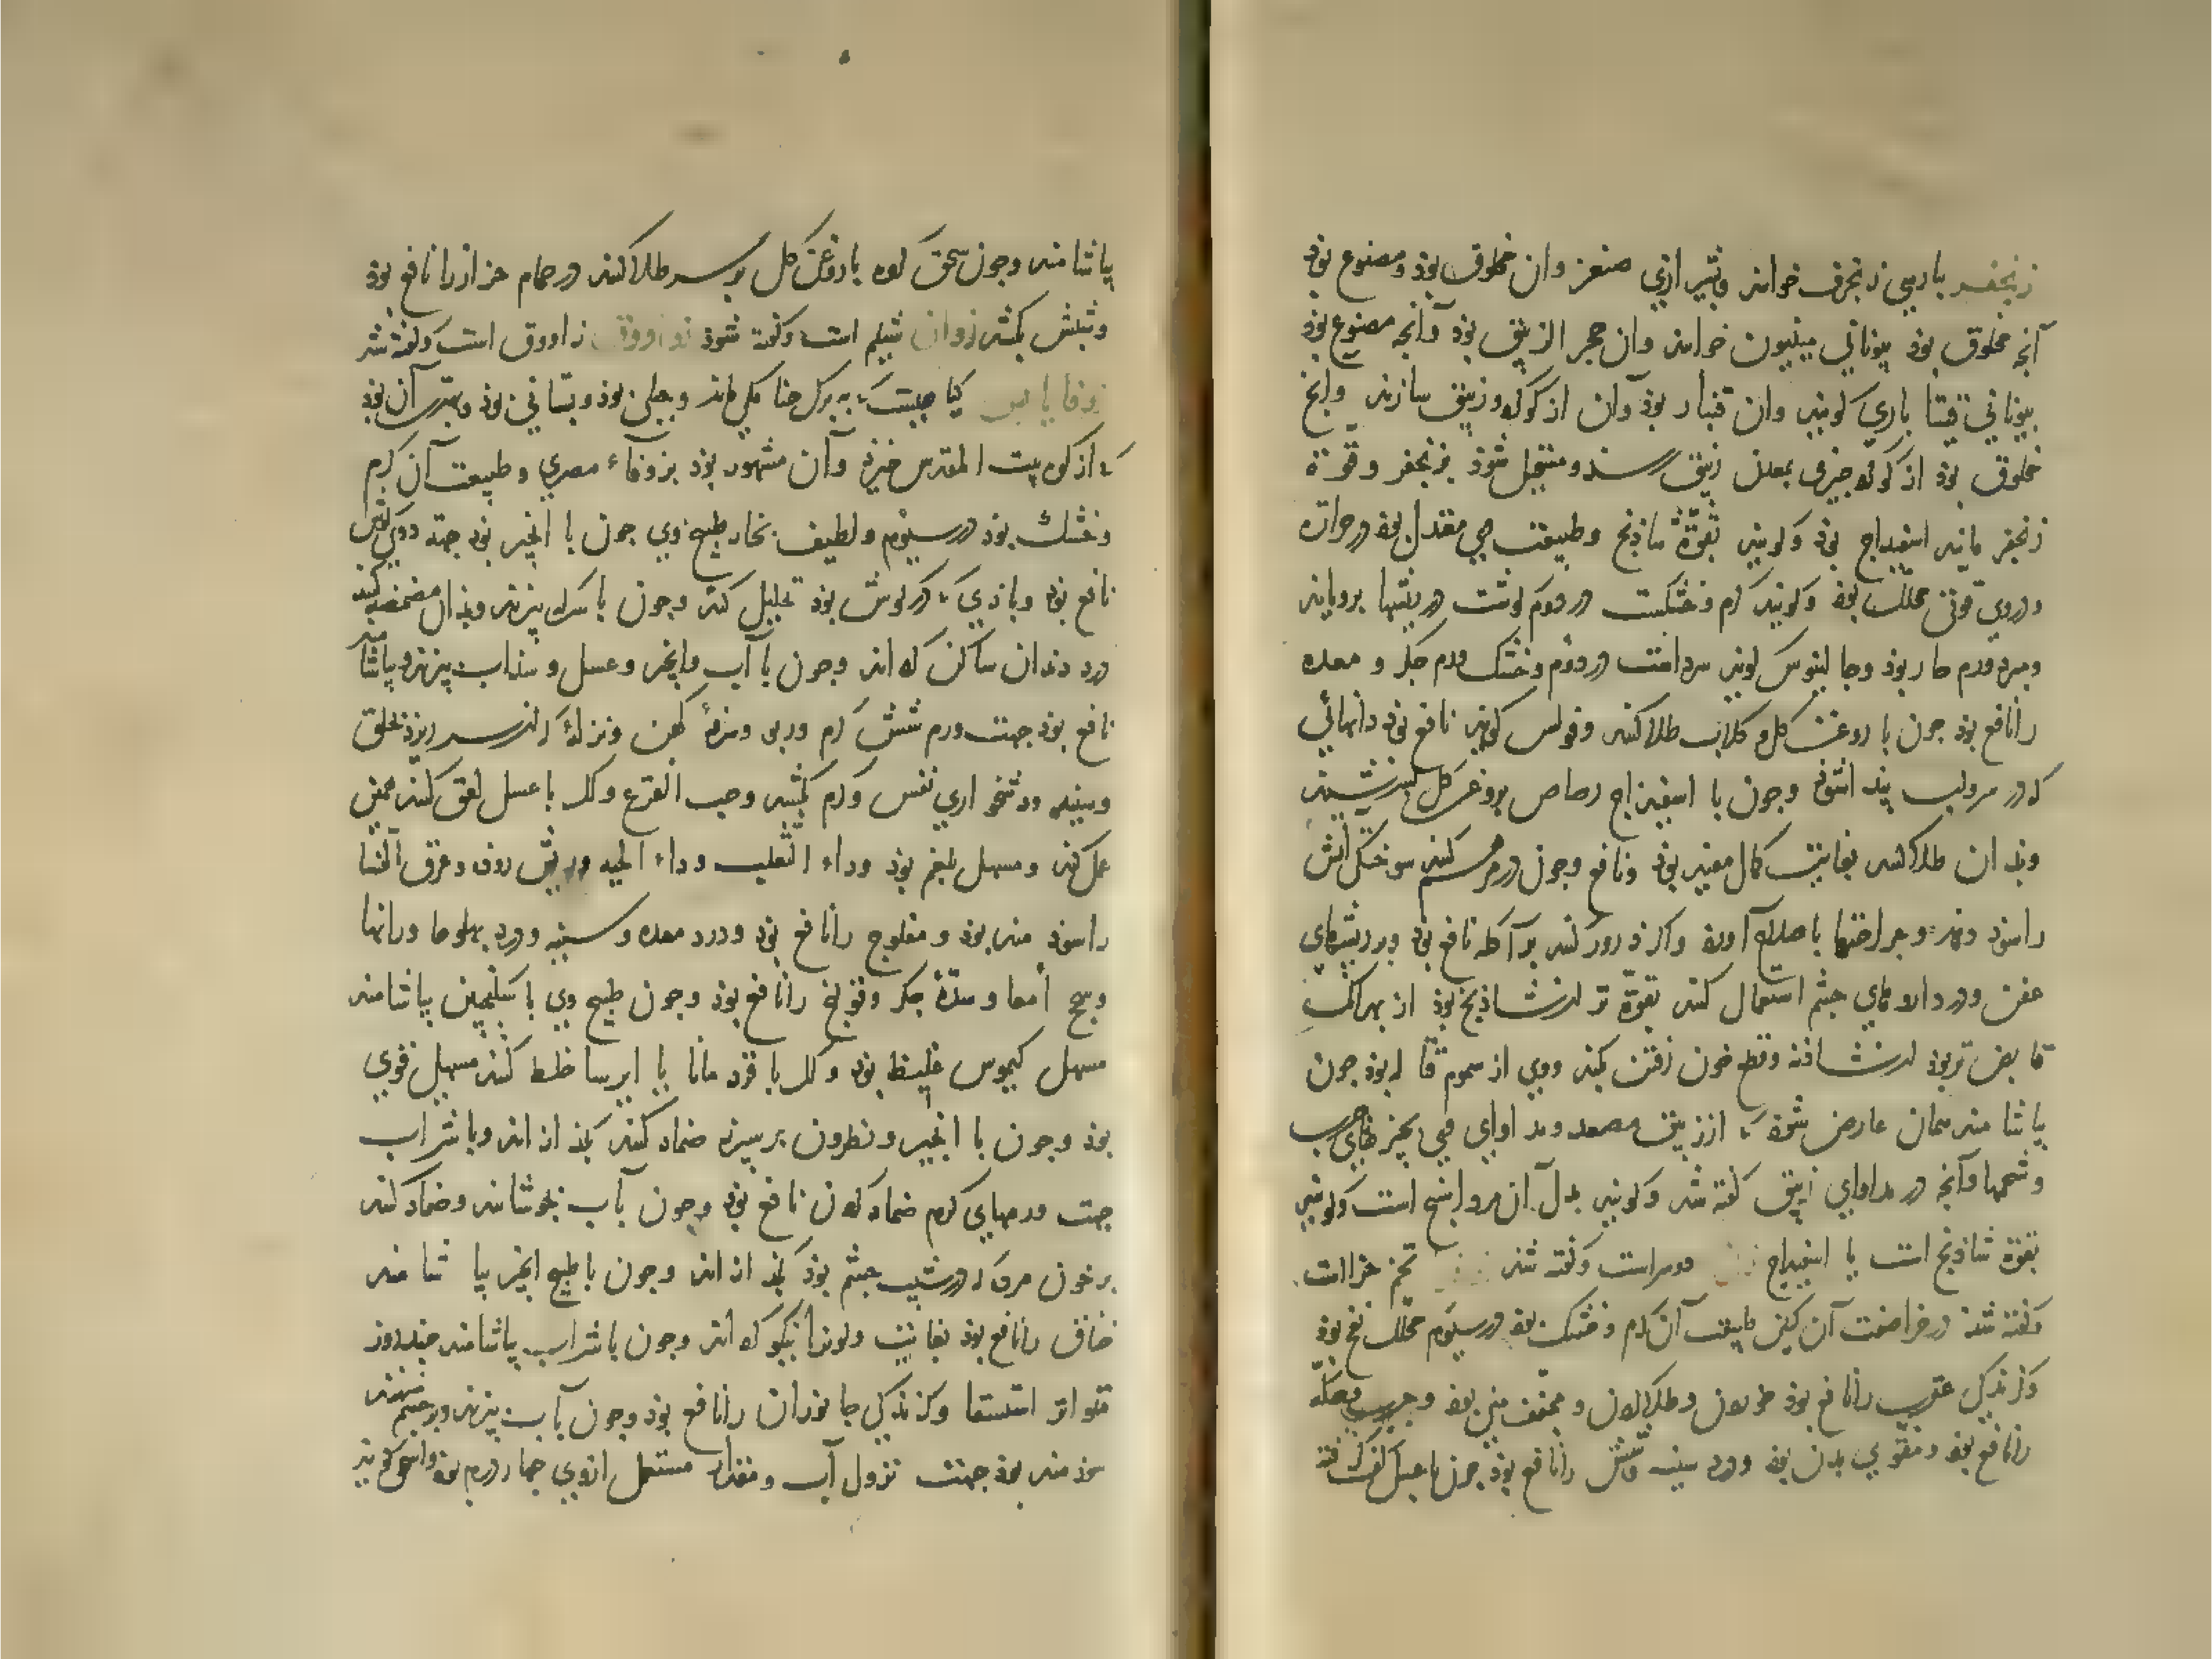 زنجفر بپارسی زنجرف خوانند وبشیرازی صنعر وان مخلوق بوذ ومصنوع بوذ
آنچه مخلوق بوذ بیونانی مینیون خوانند وان حجر الزیبق بوذ وآنجه مصنوع بوذ
بیونانی قینا باری کویند وان قنبار بوذ وآن از کوکرد وزیبق سازند وانج
مخلوق بوذ از کوکرد جیزی بمعدن زیبق رسد ومستحیل شوذ بزنجفر وقوة
زنجفر مانند اسفیداج بوذ وکویند بقوة شاذنج وطبیعت وی معتدل بوذ در حرارة
ودروی قوتی محلل بوذ وکویند کرم وخشکست در دوم کوشت در ریشها برویاند
ومبرد ورم حار بوذ وجالینوس کویند سرد است در دوم وخشک ورم جکر و معده
را نافع بوذ جون با روغن کل و کلاب طلا کنند وفولس کویند نافع بوذ دانهائی
که در سر ولب پیدا شوذ وجون با اسفیداج رصاص بروغن کل بسرشند
وبدان طلا کنند بغایت کمال مفید بوذ ونافع وجون در مرهم کنند سوختکی آتش
را سوذ دهد وجراحتها باصلاح آورد واکر ذرور کنند بر آکله نافع بوذ ودر ریشهای
عفن ودر داروهای جشم استعمال کنند بقوة تر از شاذنج بوذ از بهر آنک
قابض تر بوذ از شاذنه وقطع خون رفتن بکند ووی از سموم قتاله بوذ جون
بیاشامند همان عارض شوذ که از زیبق مصعد ومداوای وی بچیزهای جرب
وشحمها وآنچه در مداوای زیبق کفته شد وکویند بدل آن مرداسنج است وکویند
بقوة شاذنج است یا اسفیداج دوسر است وکفته شذ تخم خزا است
وکفته شذ در خراصفت آن لیکن طبیعت آن کرم وخشک بوذ در سیوم محلل نفخ بوذ
وکزندکی عقرب را نافع بوذ خوردن وطلا کردن ومجفف منی بوذ وجرب وحکه
را نافع بوذ ومقوی بدن بوذ ودرد سینه وشش را نافع بوذ جون با عسل کف کرفته
بیاشامند وجون سحق کرده با روغن کل بر سر طلا کنند در حمام حزاز را نافع بوذ
وشپش بکشد زوان شیلم است وکفته شوذ زواووق زاووق است وکفته شد
زوفا یابس کیاهیست که ببرک حنا میماند وجبلی بوذ وبستانی بوذ وبهترین آن بوذ
که از کوه بیت المقدس خیزد وآن مشهور بوذ بزوفاء مصری وطبیعت آن کرم
وخشک بوذ در سیوم ولطیف بخار طبیخ وی جون با انجیر بوذ جهة دوی کوش
نافع بوذ وباذی که در کوش بوذ تحلیل کند وجون با سرکه بپزند وبذان مضمضه کنند
درد دندان ساکن کرداند وجون با آب وانجیر وعسل وسذاب بپزند وبیاشامند
نافع بوذ جهت ورم شش کرم وربو وسرفهٔ کهن ونزله که از سر ریزد بحلق
وسینه ودشخواری نفس وکرم بکشد وحب القرع وکر با عسل لعق کنند همین
عمل کند ومسهل بلغم بوذ وداء الثعلب وداء الحیه وریش روذه وعرق النسا
را سوذمند بوذ ومفلوج را نافع بوذ ودرد معده وسینه ودرد پهلوها ورانها
وسحج امعا وسدهٔ جکر وقولنج را نافع بوذ وجون طبیخ وی با سکنجبین بیاشامند
مسهل کیموس غلیظ بوذ وکر با قردمانا یا ایرسا خلط کنند مسهل قوی
بوذ وجون با انجیر ونطرون بر سپرز ضماد کنند بکذازاند وبا شراب
جهت ورمهای کرم ضماد کردن نافع بوذ وجون بآب بجوشانند وضماد کنند
بر خون مرده که در شیب جشم بوذ بکذازاند وجون با طبیخ انجیر بیاشامند
خناق را نافع بوذ بغایت ولون را نیکو کرداند وجون با شراب بیاشامند چند روز
متواتر استسقا وکزندکی جانوران را نافع بوذ وجون بآب بپزند وبر جشم نهند
سوذمند بوذ جهت نزول آب ومقدار مستعمل از وی چهار درم بوذ واسحق کوید